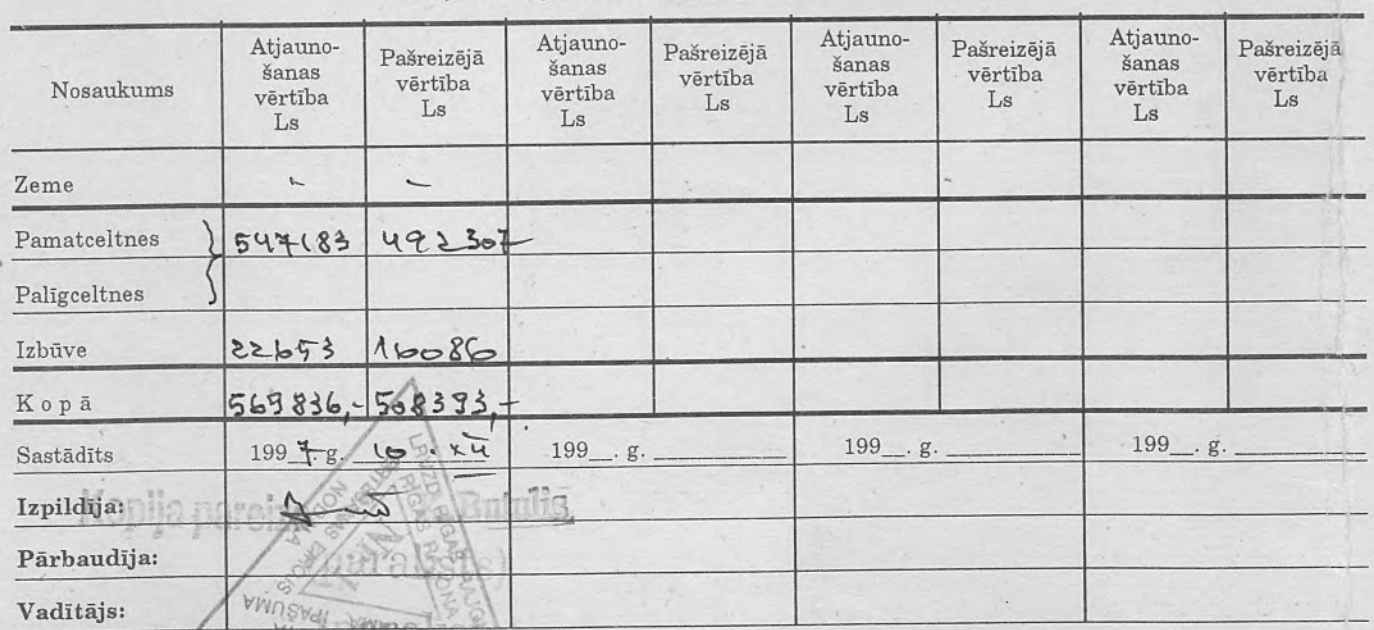 Nosaukums Atjauno-šanas vērtība Ls Pašreizējā vērtība Ls Atjauno-šanas vērtība Ls Pašreizējā vērtība Ls Atjauno-šanas vērtība Ls Pašreizējā vērtība Ls Atjauno-šanas vērtība Ls Pašreizējā vērtība Ls
Zeme - -
Pamatceltnes 547183 492307
Palīgceltnes
Izbūve 22653 16086
Kopā 569836,- 508393,-
Sastādīts 1997 g. 10. 199__. g. 199__. g. 199__. g.
Izpildīja:
Kopija pareiza Butulis
Pārbaudīja:
Vadītājs: